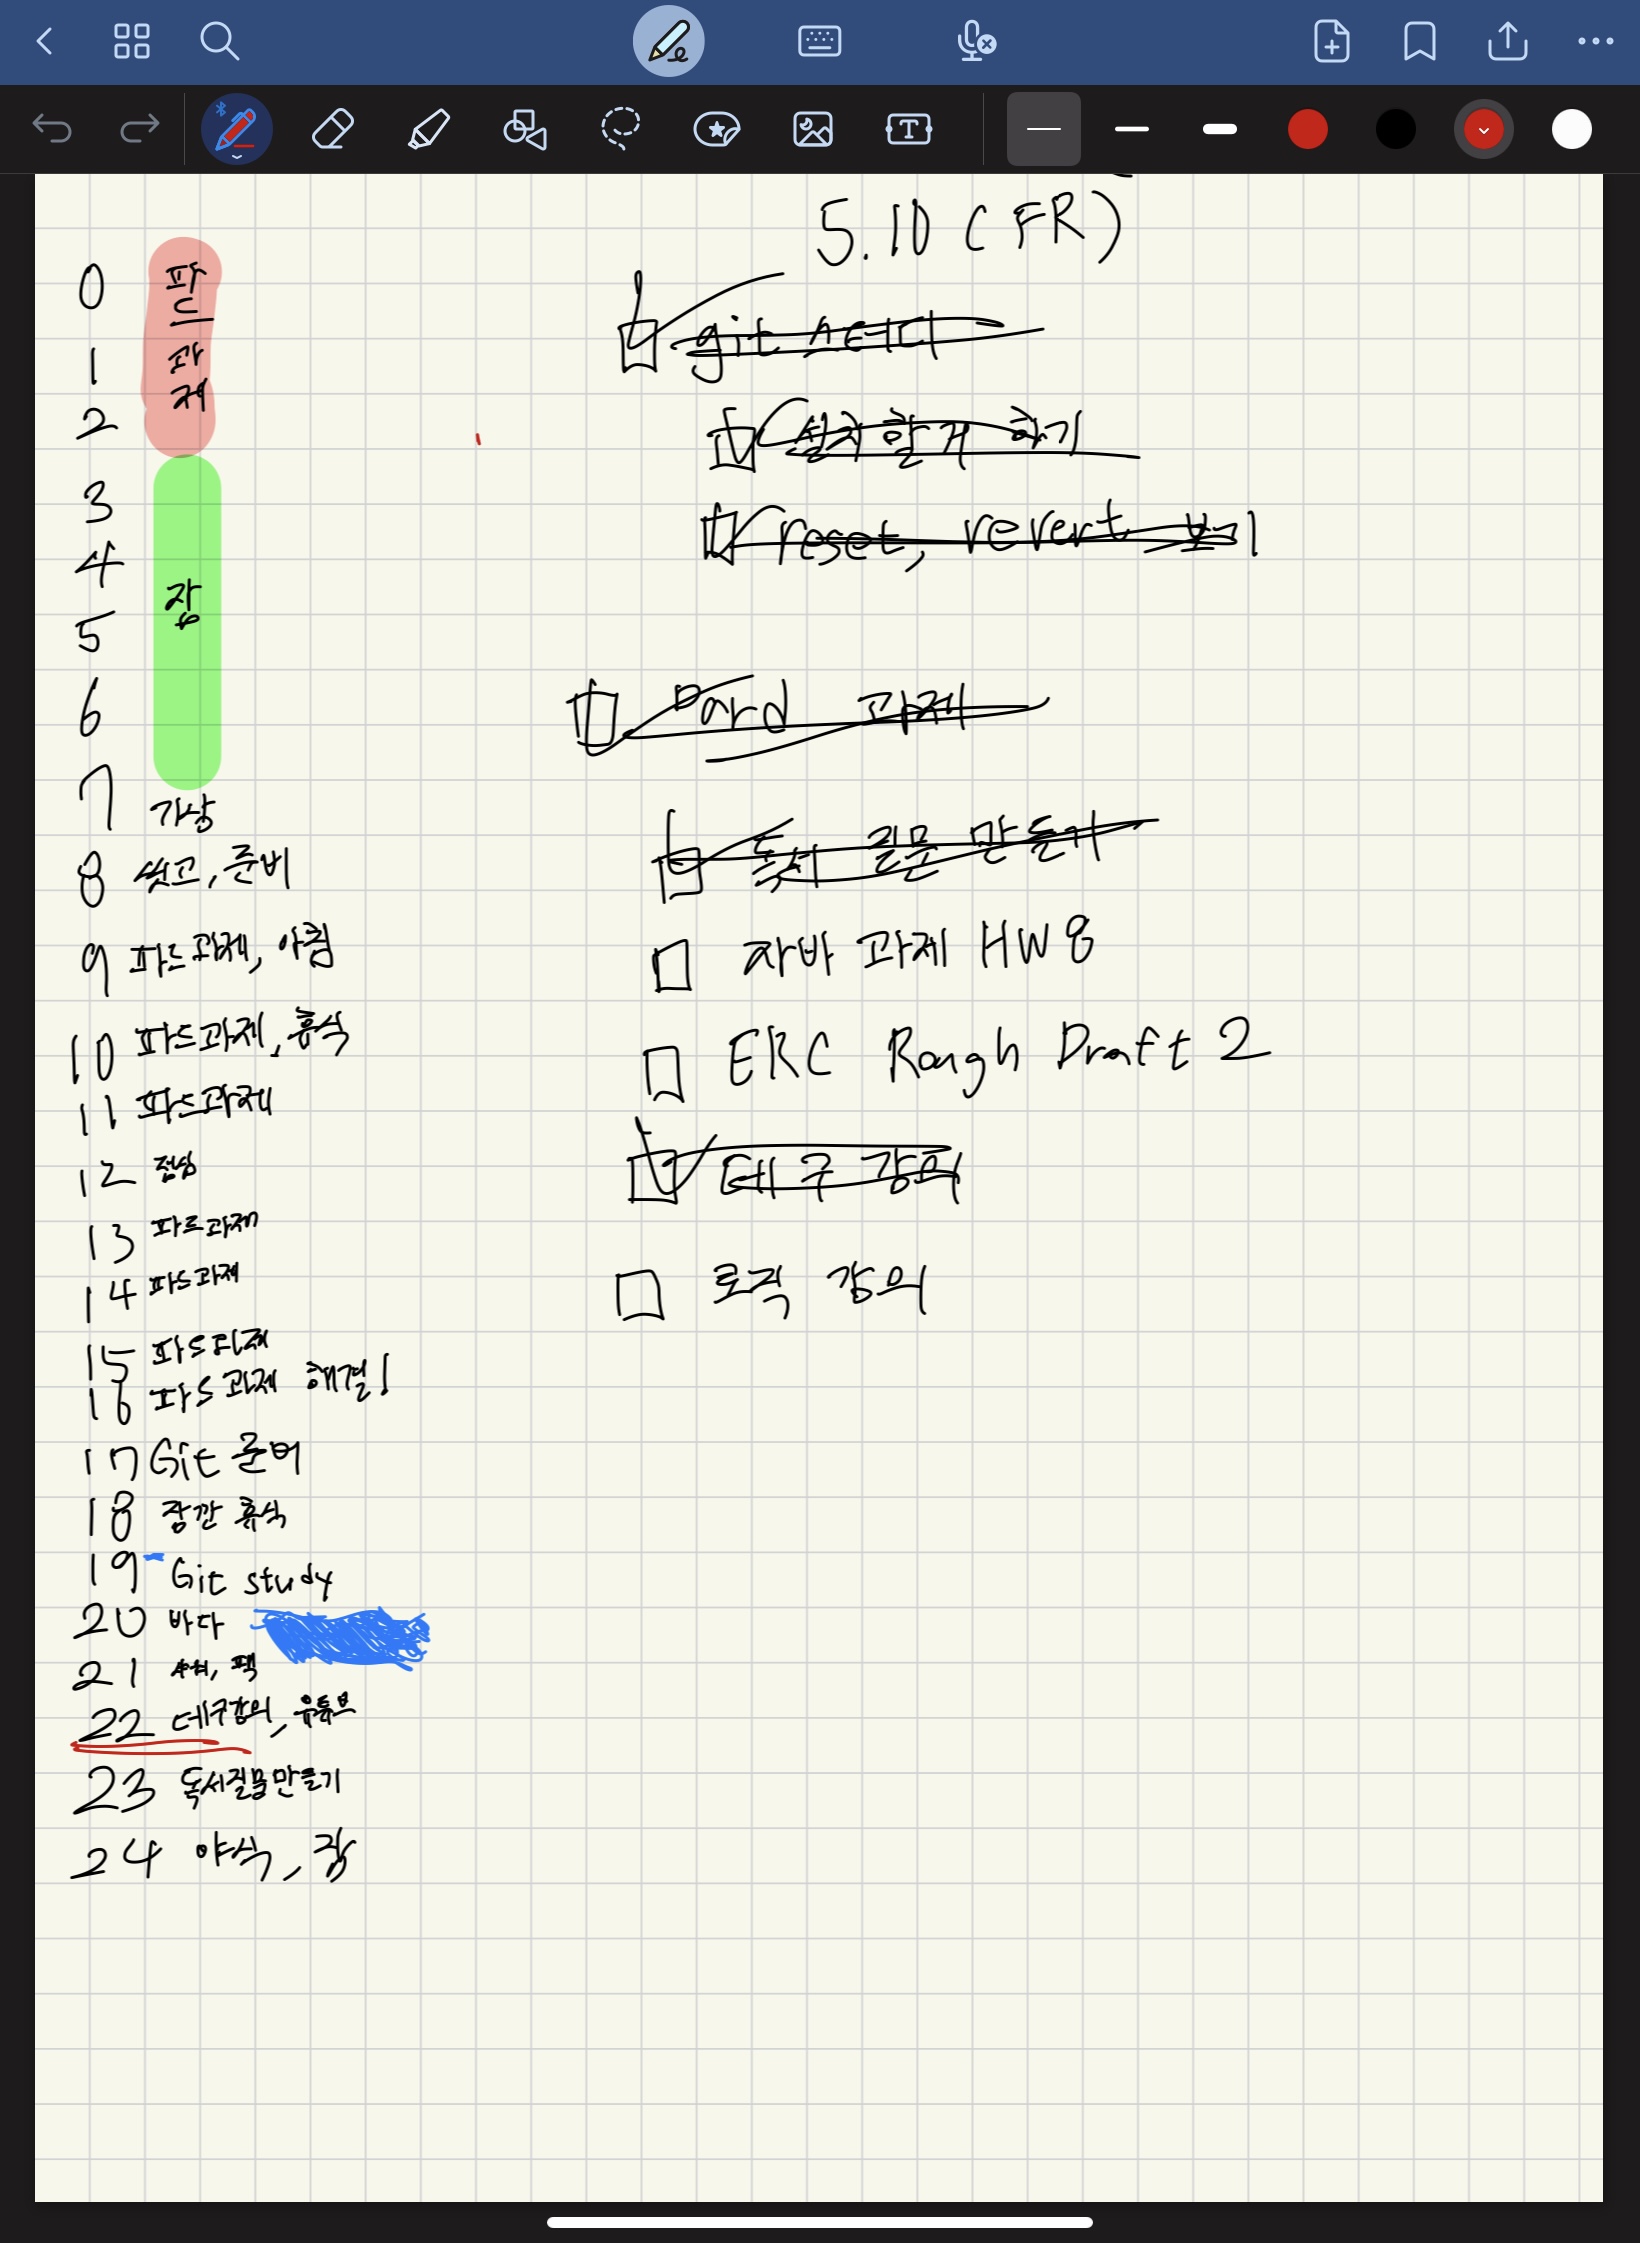 5.10 (FR)
0 파드
1 과제
2
3
4 잠
5
6
7 기상
8 씻고, 준비
9 파드과제, 아침
10 파드과제, 휴식
11 파드과제
12 점심
13 파드과제
14 파드과제
15 파드과제
16 파드과제 해결!
17 Git 준비
18 잠깐 휴식
19 Git study
20 바다
21
22 데구강의, 유튜브
23 독서질문만들기
24 야식, 잠
git 스터디
설치할거 하기
reset, revert 보기
Pard 과제
독서 질문 만들기
자바 과제 HW8
ERC Rough Draft 2
데구 강의
로직 강의